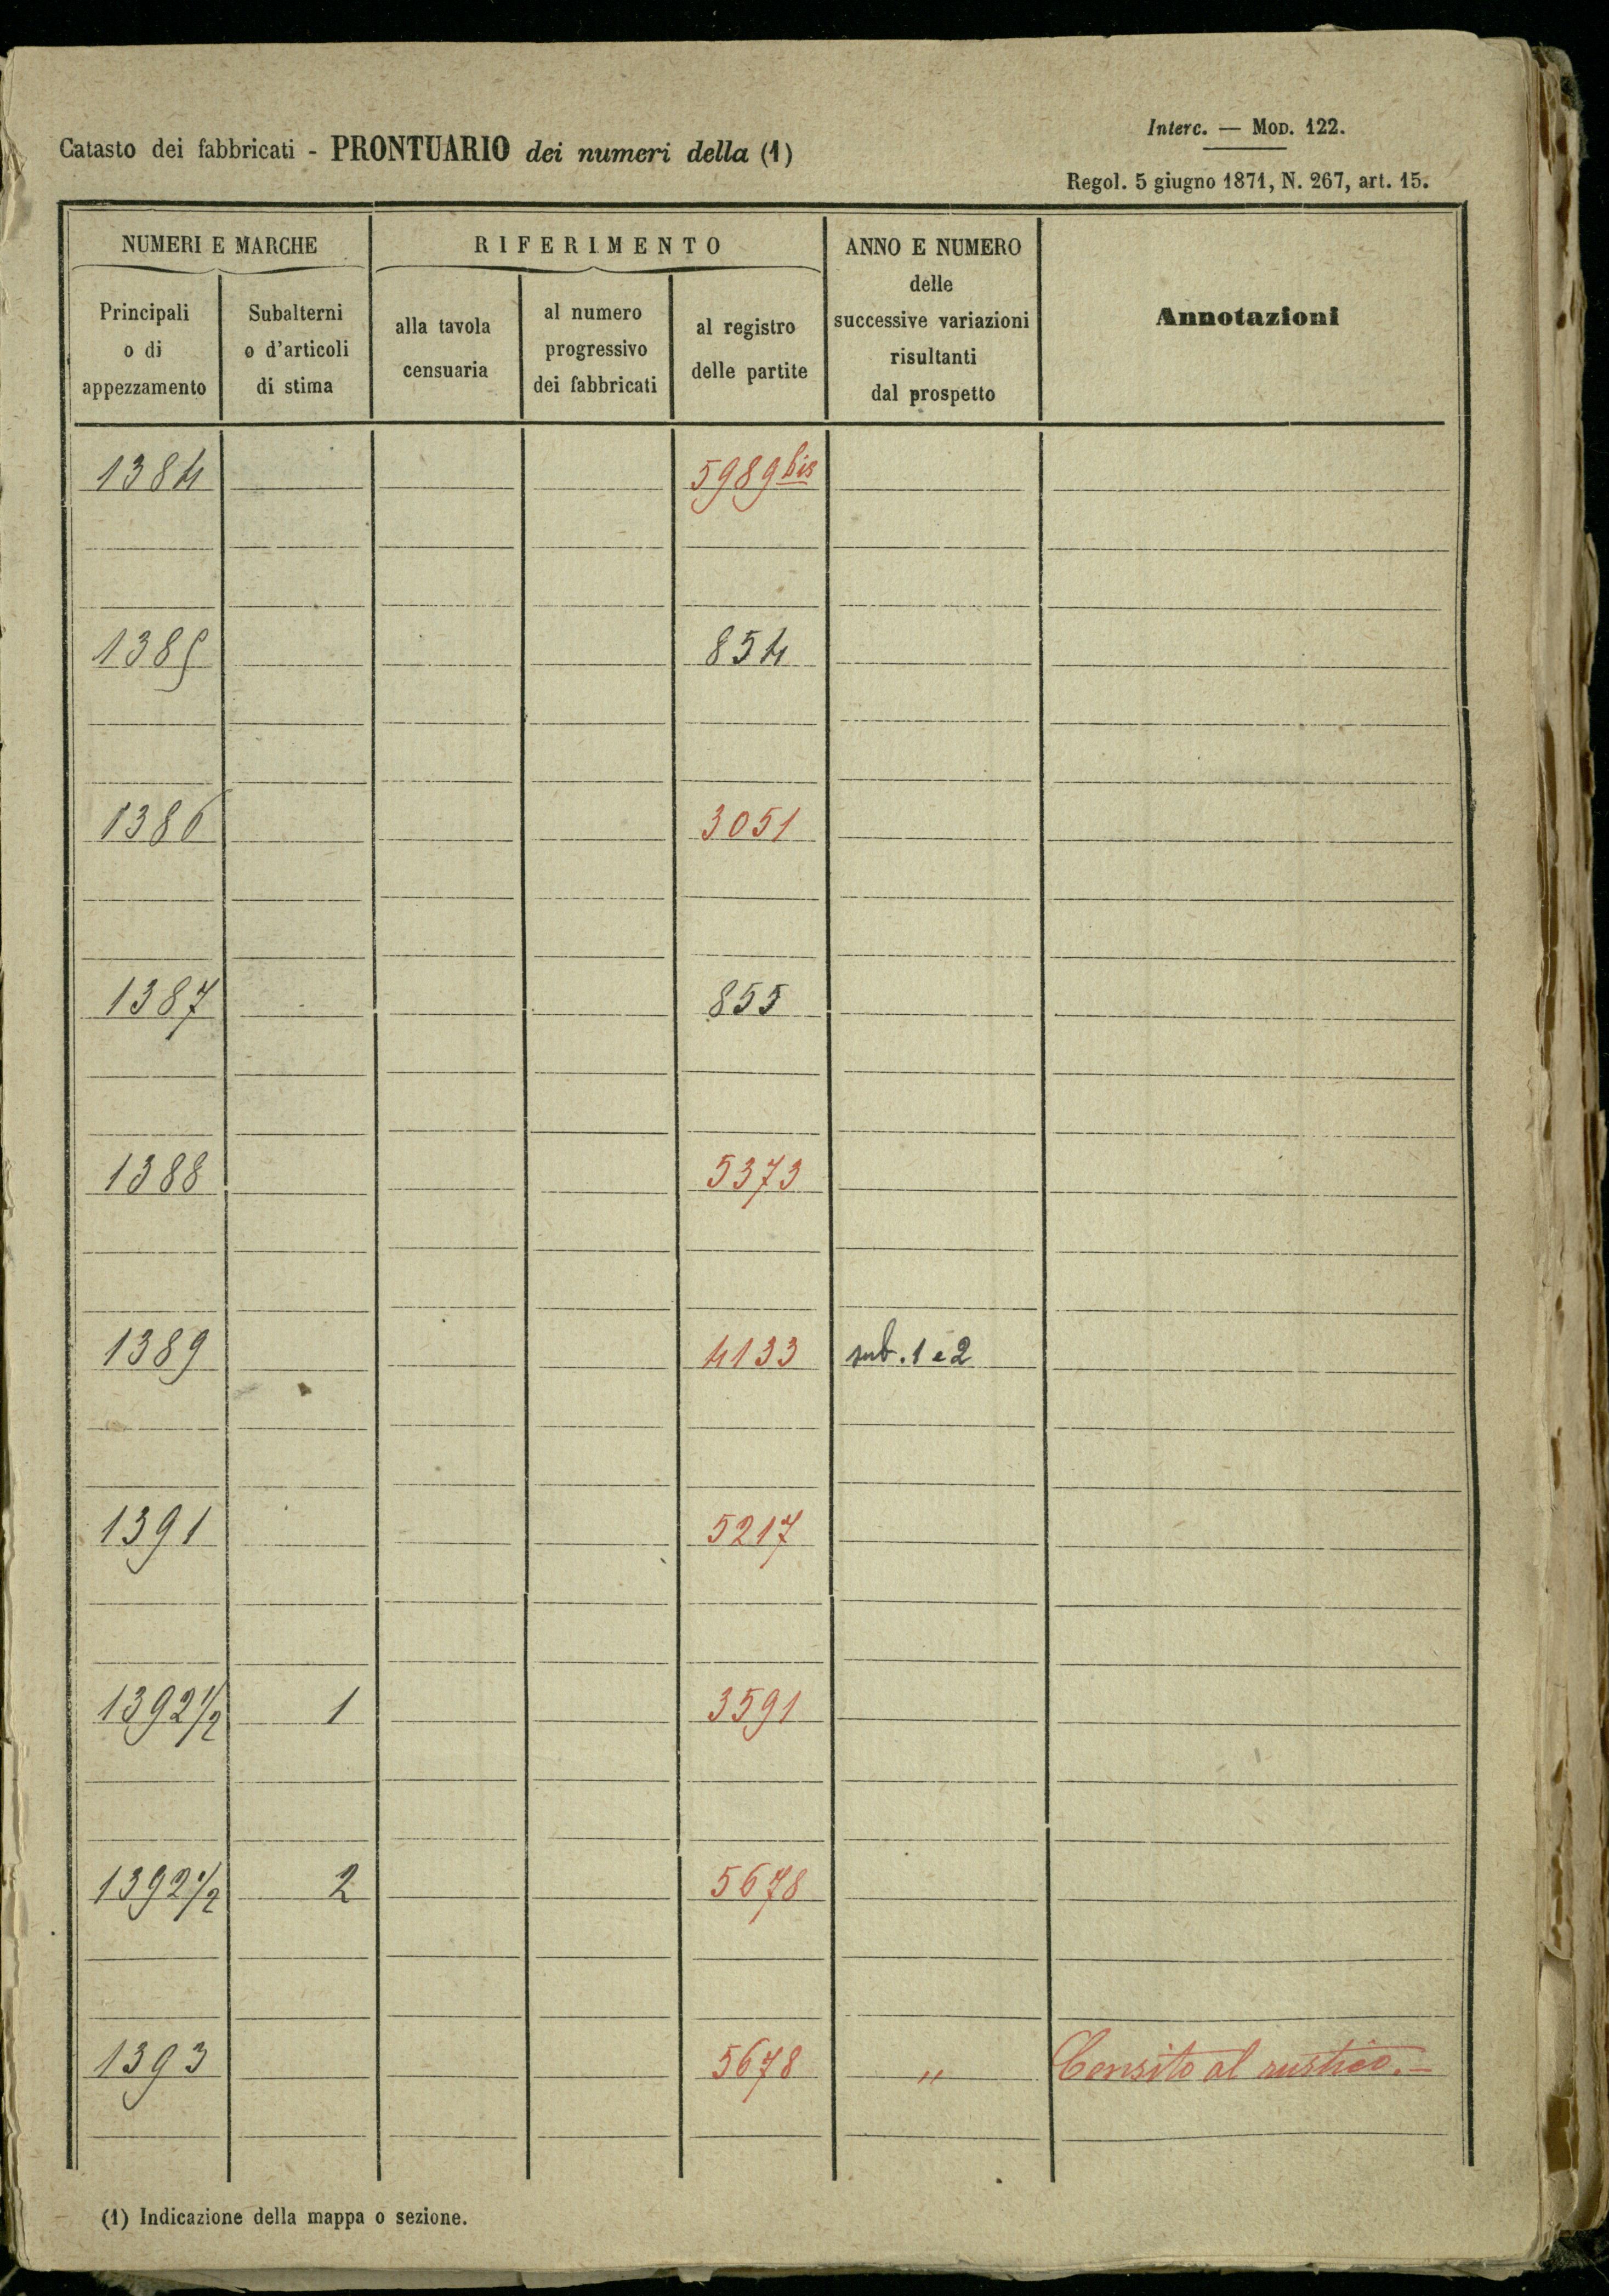 Interc. — MOD. 122.
Catasto dei fabbricati - PRONTUARIO dei numeri della (1)
Regol. 5 giugno 1871, N. 267, art. 15.
NUMERI E MARCHE
RIFERIMENTO
ANNO E NUMERO
delle
successive variazioni
risultanti
dal prospetto
Annotazioni
Principali
o di
appezzamento
Subalterni
o d'articoli
di stima
alla tavola
censuaria
al numero
progressivo
dei fabbricati
al registro
delle partite
1384 5989 bis
1385 854
1386 3051
1387 855
1388 5373
1389 4133 sub. 1 e 2
1391 5217
1392 1/2 1 3591
1392 1/2 2 5678
1393 5678 " Censito al rustico. -
(1) Indicazione della mappa o sezione.